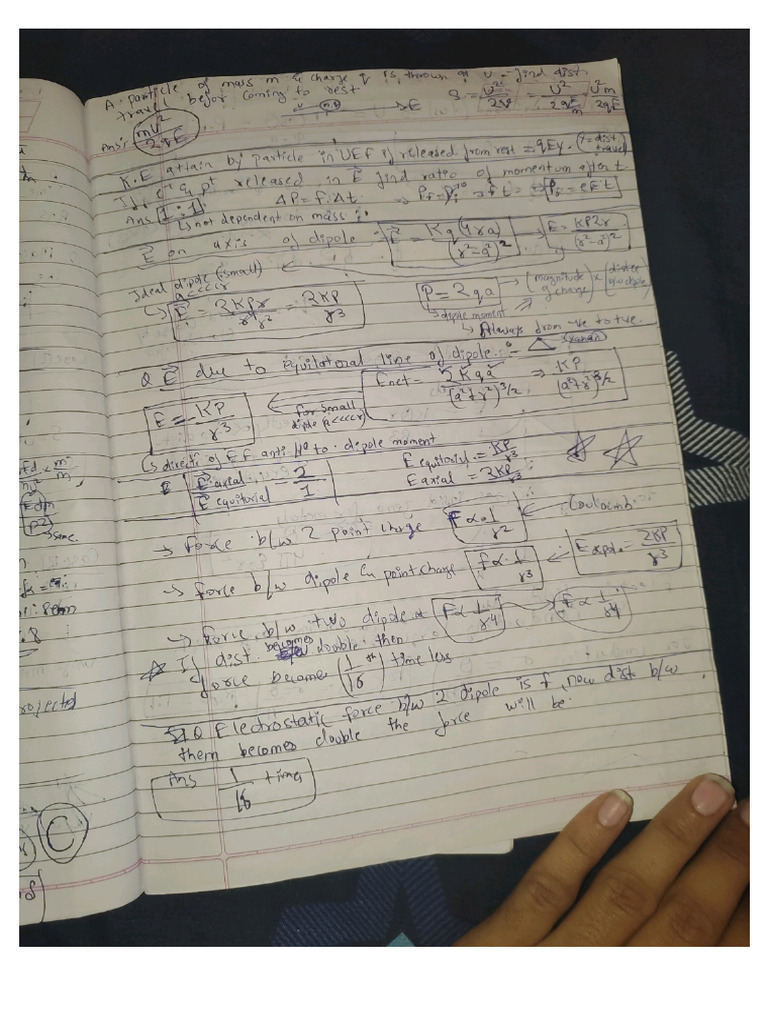 A particle of mass m & charge q is thrown at v. find dist.
travel befor coming to rest
S = U²/2a = U²/(2qE/m) = U²m/2qE
Ans: mv²/2qE
K.E attain by particle in UEF if released from rest = qEy. (y = dist travel
If e⁻ & p⁺ released in E find ratio of momentum after t
Ans 1:1 ΔP = f.Δt Pf = eEt
↳ not dependent on mass
E on axis of dipole E = Kq(4ra)/(r²-a²)² E = KP2r/(r²-a²)²
Ideal dipole (small)
a<<<<r
↳ E = 2KPr/r⁴ = 2KP/r³
P = 2qa → (magnitude of charge) ×
↳ dipole moment
↳ Always from -ve to +ve.
Q E due to equilatoral line of dipole
Enet = 2Kqa/(a²+r²)^3/2 ⇒ KP/(a²+r²)^3/2
E = -KP/r³
for small
diple (a<<<<r)
↳ directn of EF anti 11ᵃˡ to dipole moment
E axial / E equitorial = 2/1
E equitorial = KP/r³
E axial = 2KP/r³
→ force b/w 2 point charge F∝1/r² ← Coulomb
→ force b/w dipole & point charge f∝1/r³ ← E = 2KP/r³
→ force b/w two dipole F∝1/r⁴ → F∝1/r⁴
☆ If dist. becomes double then
force become (1/16)ᵗʰ time less
Q Electrostatic force b/w 2 dipole is f, now dist b/w
them becomes double the force will be.
Ans 1/16 times
same.
C